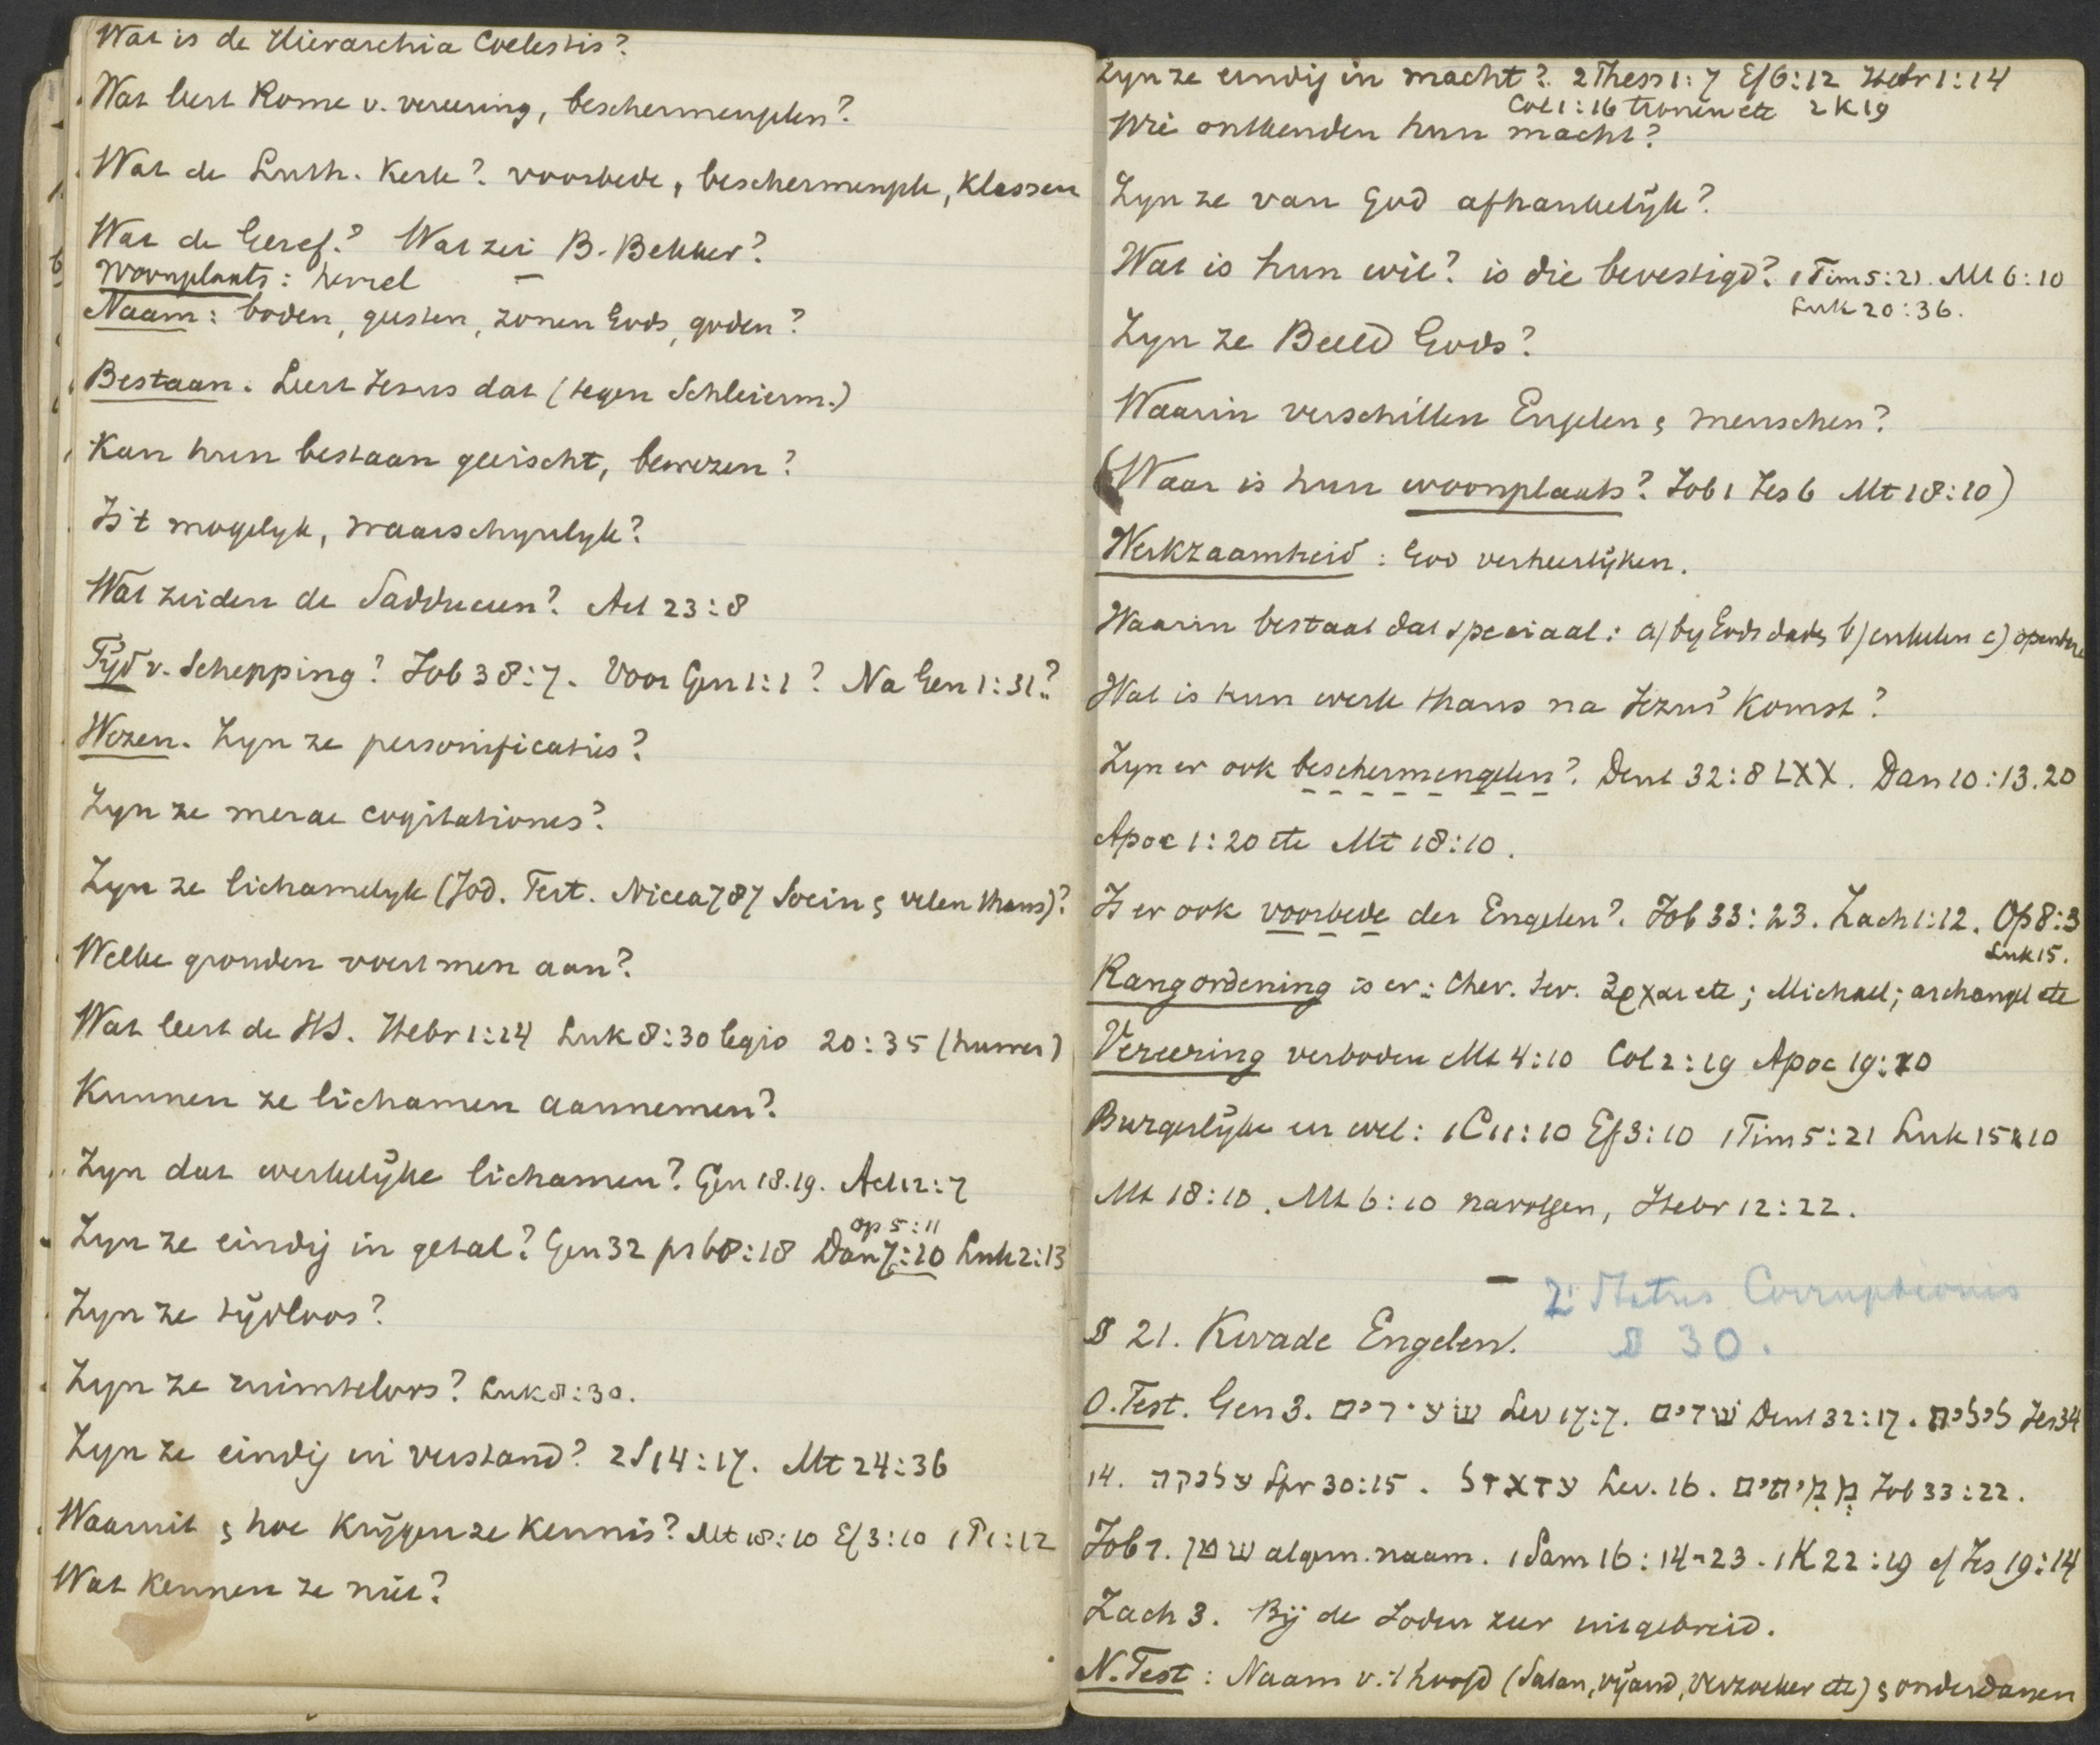 Wat is de Hierarchia Coelestis?
Wat leert Rome v. vereering, beschermengelen?
Wat de Luth. Kerk? voorbede, beschermengele, Klassen
Wat de Geref.? Wat zei B. Bekker?
Woonplaats: hemel
Naam: boden, geesten, zonen Gods, goden?
Bestaan. Leert Jesus dat (tegen Schleierm.)
Kan hun bestaan geëischt, bewezen?
Is 't mogelyk, waarschynlyk?
Wat zeiden de Sadduceen? Act 23:8
Tijd v. Schepping? Job 38:7. Voor Gen 1:1? Na Gen 1:31?
Wezen. Zyn ze personificaties?
Zyn ze merae cogitationes?
Zyn ze lichamelyk (Jod. Tert. Nicea 787 Socin & velen thans)?
Welke gronden voert men aan?
Wat leert de HS. Hebr 1:14 Luk 8:30 legio 20:35 (huwen)
Kunnen ze lichamen aannemen?
Zyn dat werkelijke lichamen? Gen 18.19. Act 12:7
Op 5:11
Zyn ze eindig in getal? Gen 32 ps 68:18 Dan 7:10 Luk 2:13
Zyn ze tijdloos?
Zyn ze ruimteloos? Luk 8:30.
Zyn ze eindig in verstand? 2S14:17. Mt 24:36
Waaruit & hoe krijgen ze kennis? Mt 18:10 Ef 3:10 1P1:12
Wat kennen ze niet?
Zyn ze eindig in macht? 2 Thess 1:7 Ef 6:12 Hebr 1:14
Col 1:16 tronen etc 2K19
Wie ontkenden hun macht?
Zyn ze van God afhankelijk?
Wat is hun wil? is die bevestigd? 1Tim 5:21. Mt 6:10
Luk 20:36.
Zyn ze Beeld Gods?
Waarin verschillen Engelen & menschen?
(Waar is hun woonplaats? Job 1 Jes 6 Mt 18:10)
Werkzaamheid: God verheerlijken.
Waarin bestaat dat speciaal: a) by Gods daden b) enkelen c)
Wat is hun werk thans na Jezus' komst?
Zyn er ook beschermengelen? Deut 32:8 LXX. Dan 10:13.20
Apoc 1:20 etc Mt 18:10.
Is er ook voorbede der Engelen? Job 33:23. Zach 1:12. Op 8:3
Luk 15.
Rangordening is er: Cher. Ser. ἀρχαι etc; Michael; archangel etc
Vereering verboden Mt 4:10 Col 2:19 Apoc 19:10
Burgerlijke er wel: 1C11:10 Ef 3:10 1Tim 5:21 Luk 15:10
Mt 18:10. Mt 6:10 navolgen, Hebr 12:22.
2. Status Corruptionis
§ 30.
§ 21. Kwade Engelen.
O.Test. Gen 3. שׂעירים Lev 17:7. שׁדים Deut 32:17. לילית Jes 34
14. עלוקה Spr 30:15. עזאזל Lev. 16. ממיתים Job 33:22.
Job 1. שטן algem. naam. 1 Sam 16:14-23. 1K 22:19 cf Jes 19:14
Zach 3. Bij de Joden zeer uitgebreid.
N.Test: Naam v. 't hoofd (Satan, vijand, verzoeker etc) & onderdanen